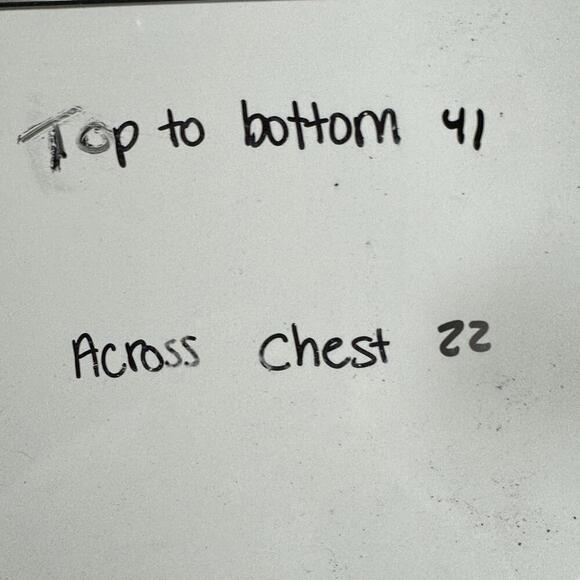 Top to bottom 41
Across Chest 22